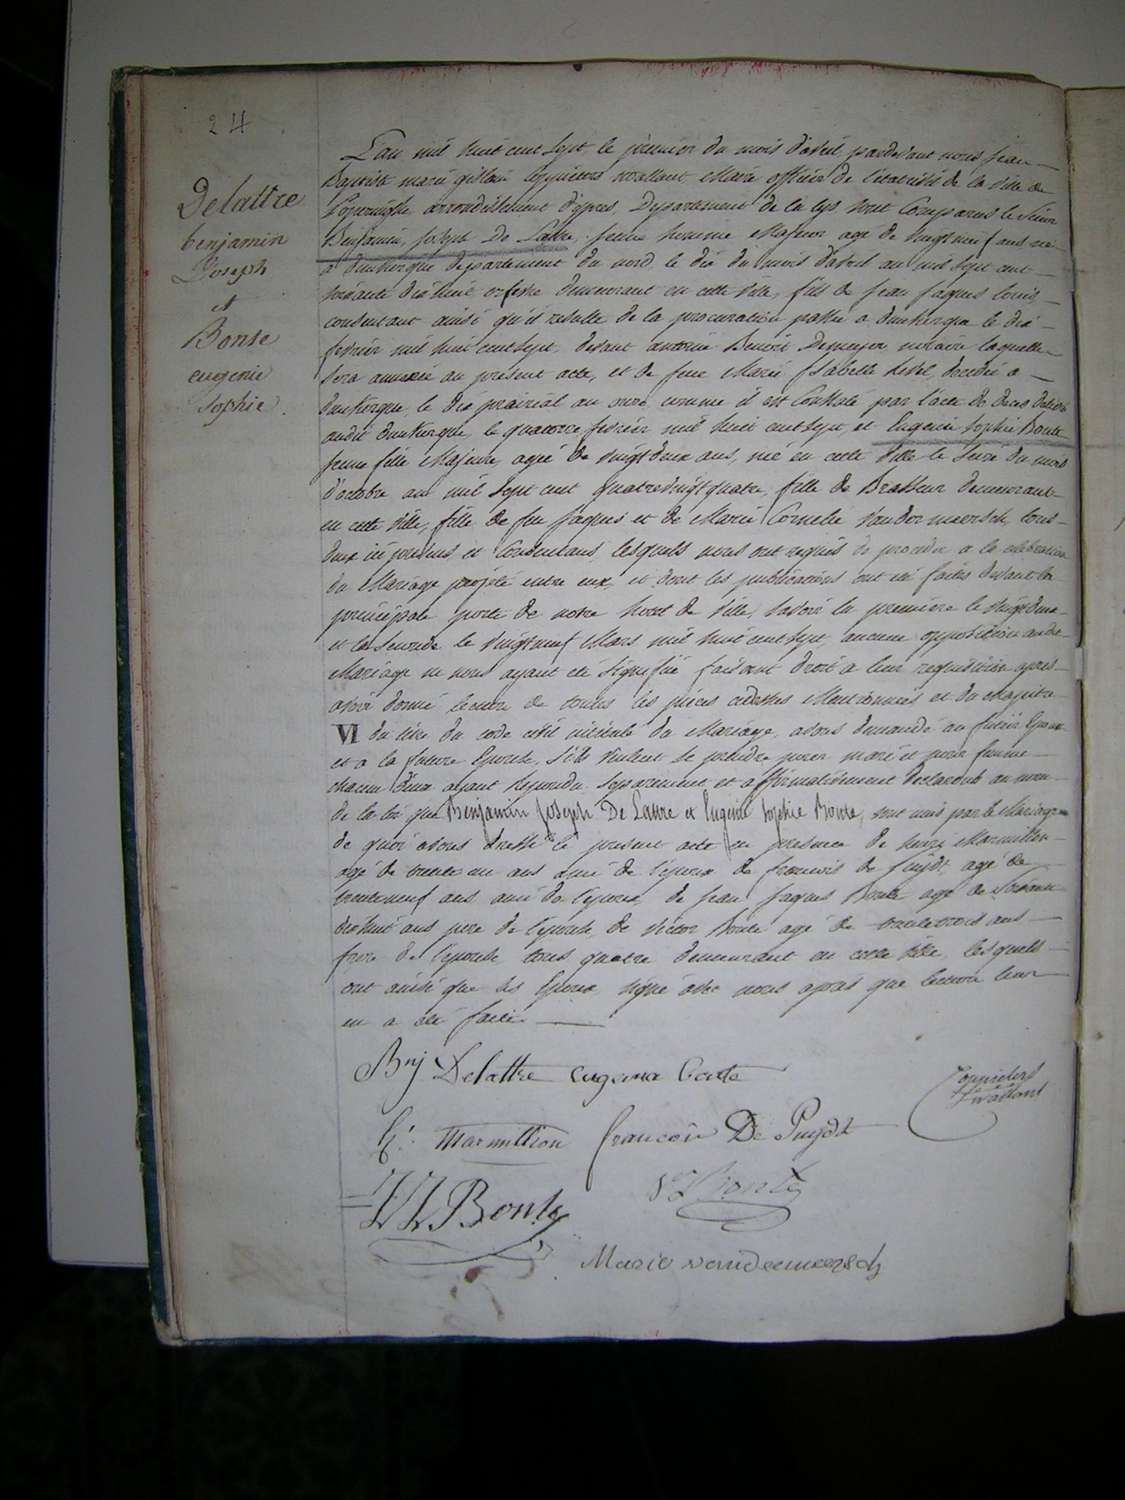 24
Delattre
benjamin
Joseph
et
Bonte
eugenie
Sophie.
L'an mil huit cent sept le premier du mois d'avril, pardevant nous jean
Baptiste marie maire officier de l'état civil de la ville de
arrondissement d'ypres, Departement de la lys sont Comparus le Sieur
Benjamin, Joseph De Lattre, jeune homme Majeur agé de vingt neuf ans né
a dunkerque departement du nord, le dix du mois d'avril an mil sept cent
soixante dix huit orfevre demeurant en cette ville, fils de jean jaques louis
consentant ainsi qu'il resulte de la procuration passée a dunkerque le dix
fevrier mil huit cent sept, devant antoine Benoit notaire laquelle
sera annexée au présent acte, et de feue Marie Isabelle decedée a
dunkerque, le dix prairial an onze comme il est Constaté par l'acte de deces delivré
audit dunkerque, le quatorze fevrier mil huit cent sept, et Eugenie Sophie Bonte
jeune fille Majeure, agée de vingt deux ans, née en cette ville le Seize du mois
d'octobre an mil sept cent quatrevingt quatre, fille de Brasseur demeurant
en cette ville, fille de jaques et de Marie Cornelie Vandermeersch, tous
deux ici presens et Consentans, lesquels nous ont requis de proceder a la celebration
du Mariage projeté entre eux, et dont les publications ont été faites devant la
principale porte de notre hotel de ville, savoir la premiere le vingt deux
et la seconde le vingt neuf Mars mil huit cent sept, aucune opposition audit
Mariage ne nous ayant été signifiée faisant droit a leur requisition apres
avoir donné lecture de toutes les pièces cidessus Mentionnées et du chapitre
VI du titre du code civil intitulé du Mariage, avons demandé au futur Epoux
et a la future Epouse, s'ils veulent se prendre pour mari et pour femme
chacun d'eux ayant repondu separement et affirmativement declarons au nom
de la loi que Benjamin Joseph De Lattre et Eugenie Sophie Bonte, sont unis par le Mariage
de quoi avons dressé le present acte en presence de henri Marmillion
agé de trente un ans ami de l'epoux de francois de Puijdt, agé de
trenteneuf ans ami de l'epoux, de jean jaques Bonte agé de
dixhuit ans pere de l'epouse, de victor Bonte agé de trentetrois ans
frere de l'epouse tous quatre demeurant en cette ville, lesquels
ont ainsi que les Epoux signé avec nous apres que lecture leur
en a été faite
Bnj Delattre eugenia bonte
H. Marmillion francois De Puijdt
Bonte
Bonte
Marie vandermeersch